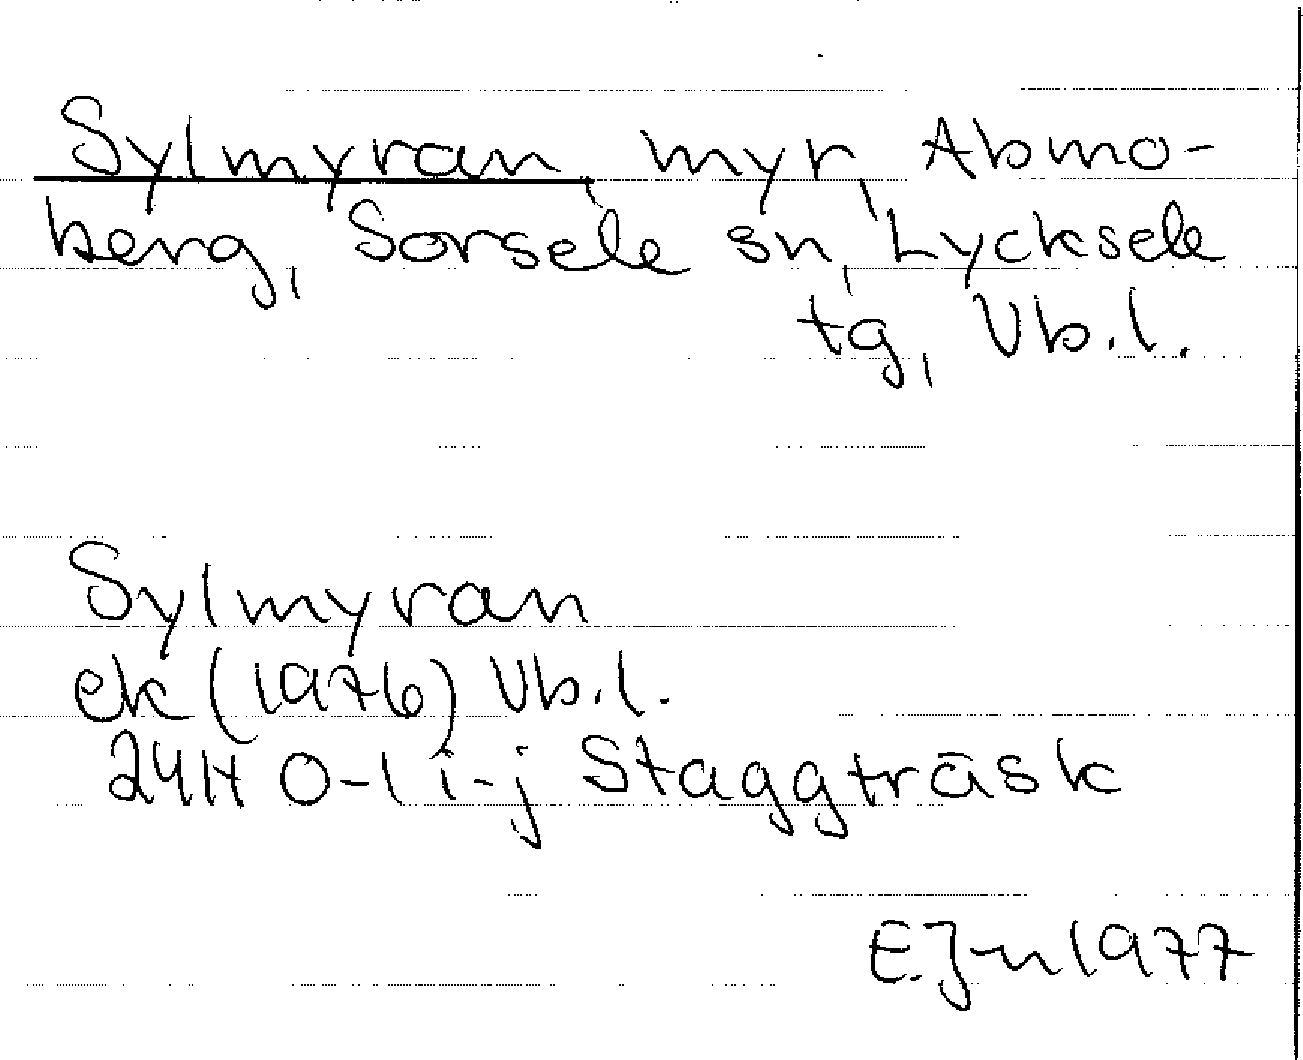 Sylmyran, myr, Abmo-
berg, Sorsele sn, Lycksele
tg, Vb.l.
Sylmyran
ek (1976) Vb.l.
24H 0-1 i-j Staggträsk
E.J-n 1977